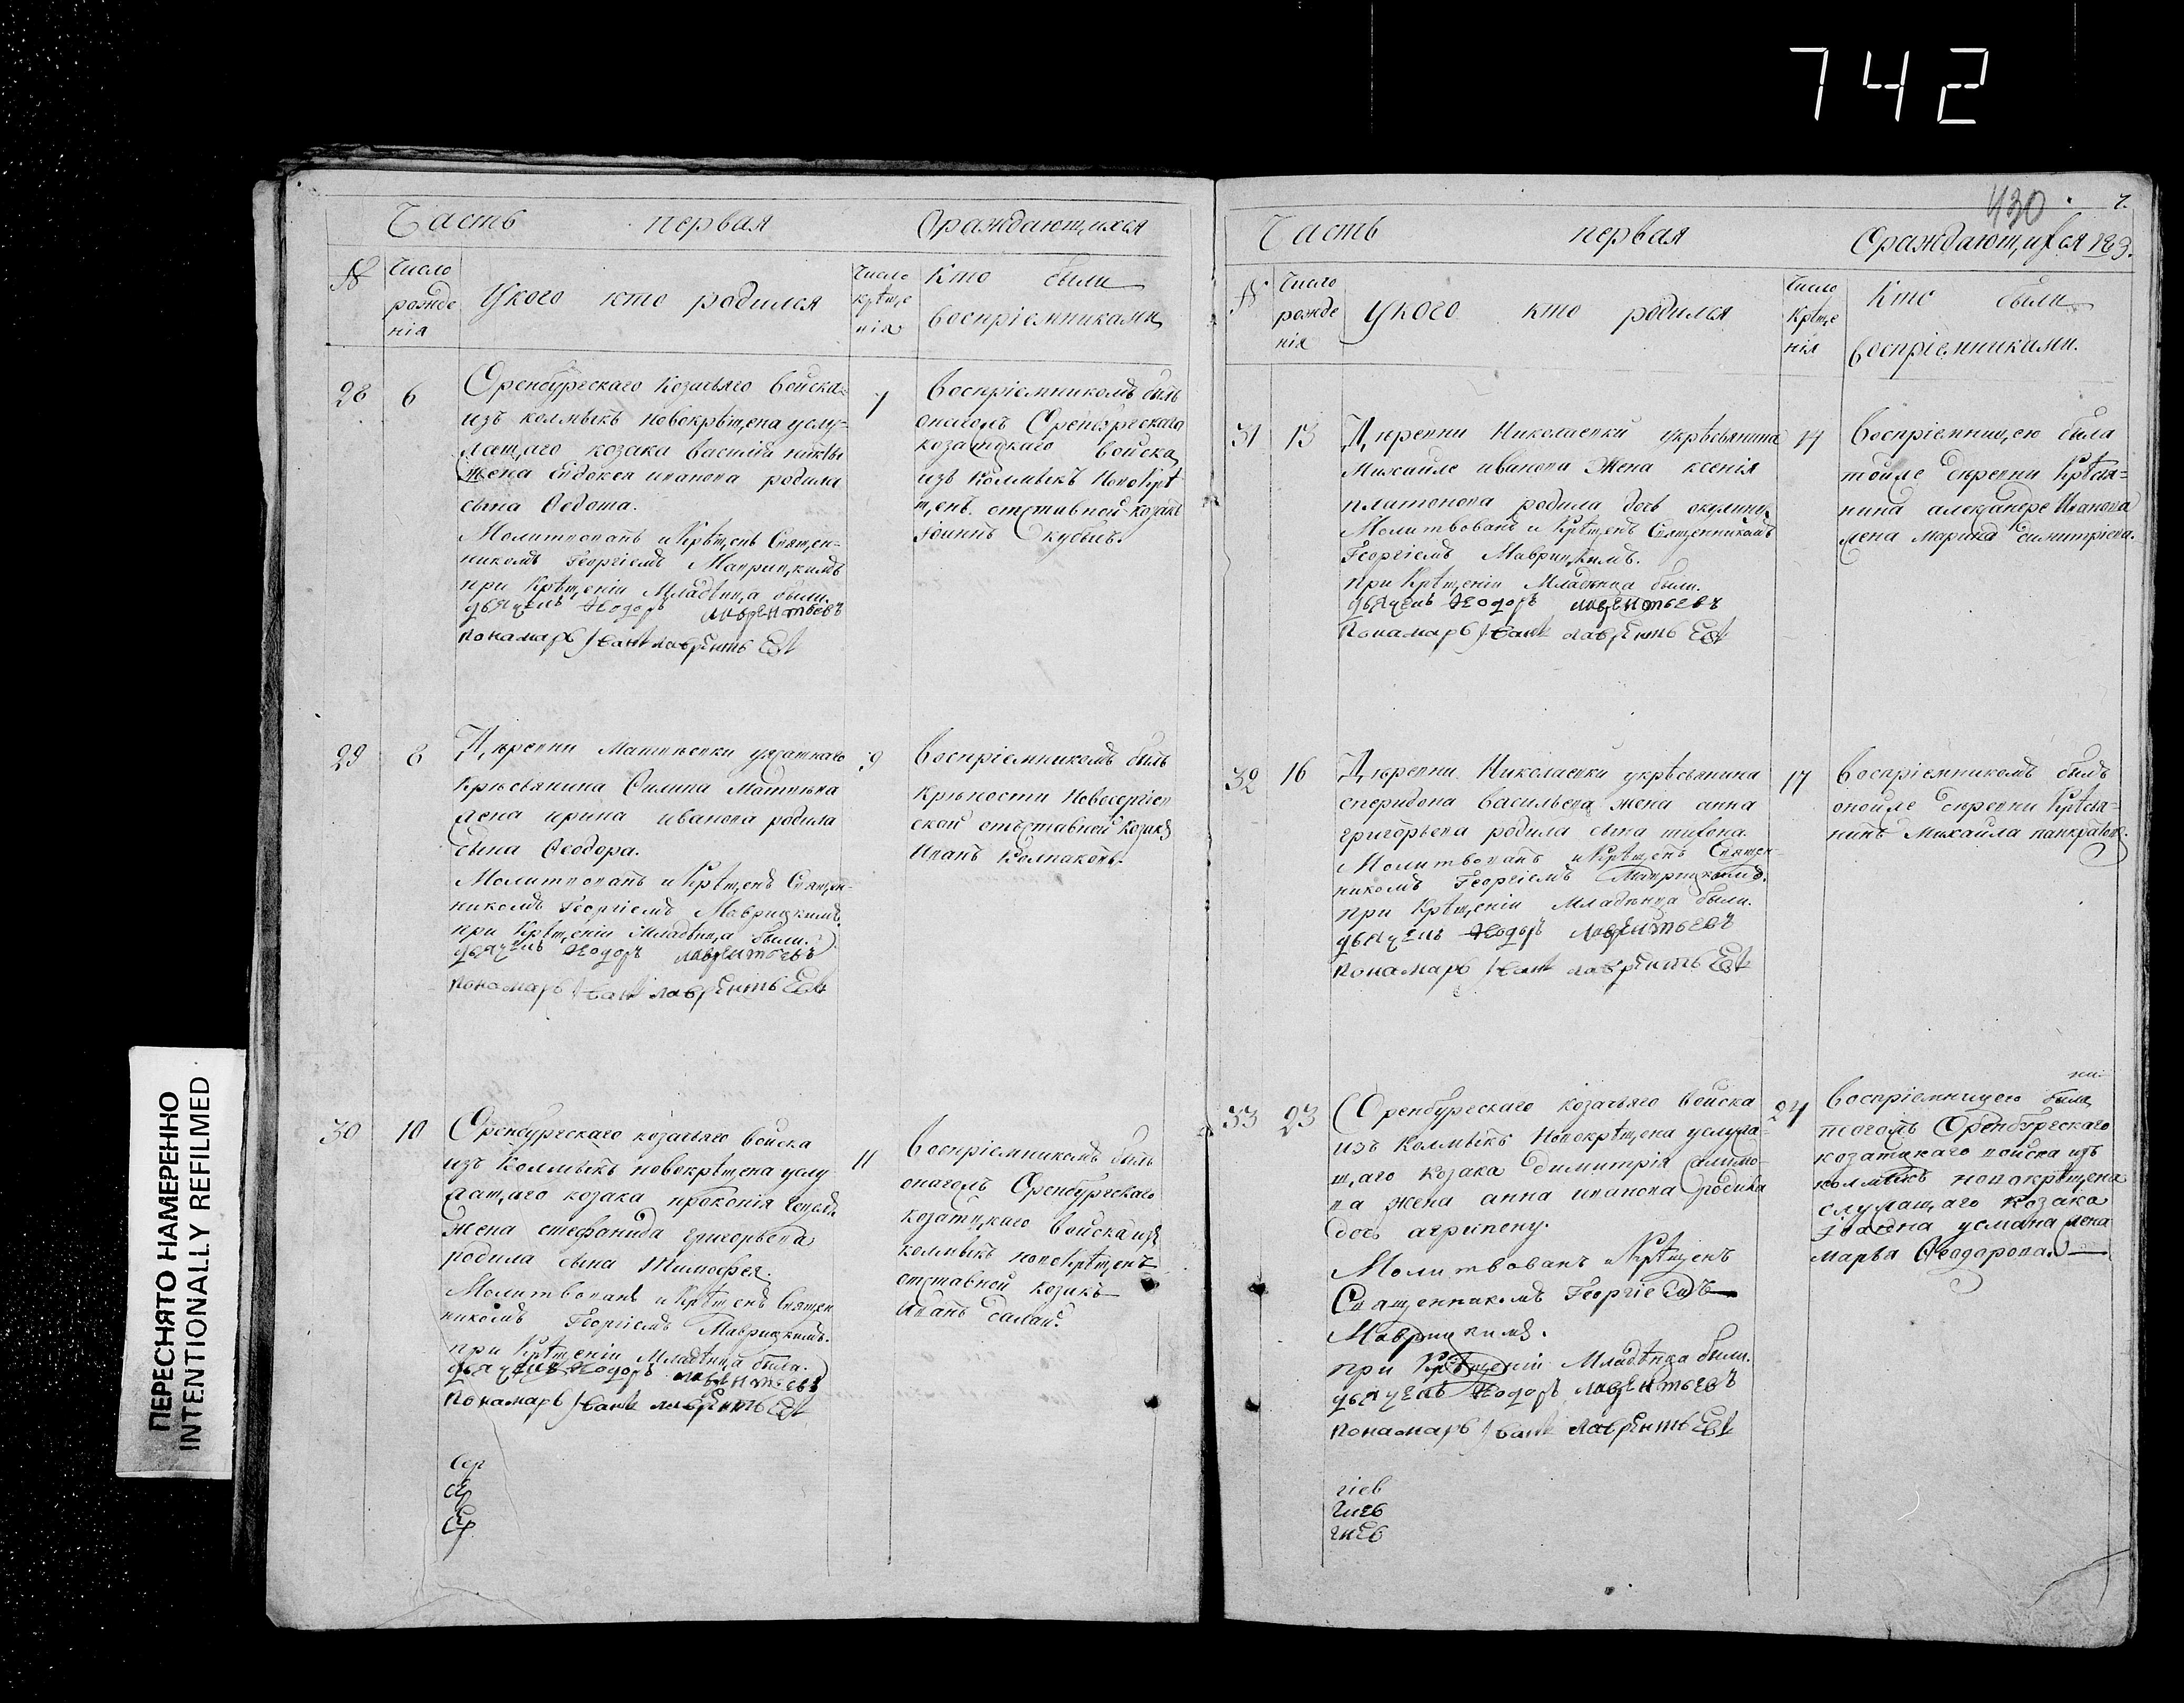 742
430
7.
Часть первая Ораждающихся
№
Число рожде нія
Укого кто родился
Число крѣще нія
Кто были воспріемниками
28
6
Оренбургскаго Козачьяго войска
изъ колмыкъ новокрѣщена услу-
жащаго козака василія
жена Евдокея иванова родила
сына Ѳедота.
Молитвованъ и Крѣщенъ Священ-
никомъ Георгіемъ Маврицкимъ
при Крѣщеніи Младѣнца были.
дьячекъ Ѳеодоръ лаврентьевъ
пономарь Иванъ лаврентьевъ
7
воспріемникомъ былъ
онагожъ Оренбургскаго
козатцкаго войска
изъ колмыкъ Новокрѣ
щенъ отставной козакъ
Іоаннъ Кубышъ.
29
8
Дѣревни Матвѣевки уясашнаго
Крѣсьянина Филипа Матвѣева
жена ирина иванова родила
сына Ѳеодора.
Молитвованъ и Крѣщенъ Священ-
никомъ Георгіемъ Маврицкимъ.
при Крѣщеніи Младѣнца были.
дьячекъ Ѳеодоръ лаврентьевъ
пономарь Иванъ лаврентьевъ
9
воспріемникомъ былъ
Крѣпости Новосергіев
ской отъставной козакъ
Иванъ Колпаковъ.
30
10
Оренбургскаго козачьяго войска
изъ колмыкъ новокрѣщена услу
жащаго козака прокопія
жена стефанида григорьева
родила сына Тимофея.
Молитвованъ и Крѣщенъ Священ
никомъ Георгіемъ Маврицкимъ.
при Крѣщеніи Младѣнца были.
дьячекъ Ѳеодоръ лаврентьевъ
пономарь Иванъ лаврентьевъ
11
воспріемникомъ былъ
онагожъ Оренбургскаго
козатцкаго войска изъ
колмыкъ новокрѣщенъ
отставной козакъ
Иванъ далай.
Сер
Сер
Сер
Часть первая Ораждающихся 183.
№
Число рожде нія
Укого кто родился
Число Крѣще нія
Кто были воспріемниками.
31
13
Дѣревни Николаевки укрѣсьянина
Михайле иванова Жена ксенія
платонова родила дочь окулину
Молитвованъ и Крѣщенъ Священникомъ
Георгіемъ Маврицкимъ.
при Крѣщеніи Младѣнца были.
дьячекъ Ѳеодоръ лаврентьевъ
пономарь Иванъ лаврентьевъ
14
Воспріемницею была
тойже дѣревни Крѣсья-
нина александре Иванова
жена марина димитріева.
32
16
Дѣревни Николаевки укрѣсьянина
спиридона васильева жена анна
григорьева родила сына тифона.
Молитвованъ и Крѣщенъ Священ-
никомъ Георгіемъ Маврицкимъ.
при Крѣщеніи Младѣнца были.
дьячекъ Ѳеодоръ лаврентьевъ
пономарь Иванъ лаврентьевъ
17
воспріемникомъ былъ
онойже дѣревни Крѣсья-
нинъ Михаила панкратовъ.
33
23
Оренбургскаго козачьяго войска
изъ колмыкъ Новокрѣщена услужа-
щаго козака димитрія салимо-
ва жена анна иванова родила
дочь агрипену.
Молитвованъ и Крѣщенъ
Священникомъ Георгіемъ
Маврицкимъ.
при Крѣщеніи Младѣнца были.
дьячекъ Ѳеодоръ лаврентьевъ
пономарь Иванъ лаврентьевъ
24
воспріемницею была
тогожъ Оренбургскаго
козатцкаго войска изъ
колмыкъ новокрѣщена
служащаго козака
іоанна усмана жена
марья Ѳеодорова.
гіев
гиев
гиев
ПЕРЕСНЯТО НАМЕРЕННО
INTENTIONALLY REFILMED